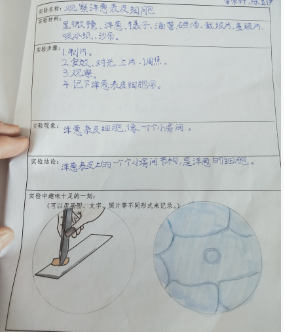 实验名称：观察洋葱表皮细胞
实验材料：显微镜、洋葱、镊子、
吸水纸、纱布。
实验步骤：1.制片。
2.安放、对光、上片、调焦。
3.观察。
4.记下洋葱表皮细胞
实验现象：洋葱表皮细胞，像一个个小房间。
实验结论：洋葱表皮上的一个个小房间
是洋葱的细胞。
实验中趣味十足的一刻：
文字、照片等不同形式来记录。）